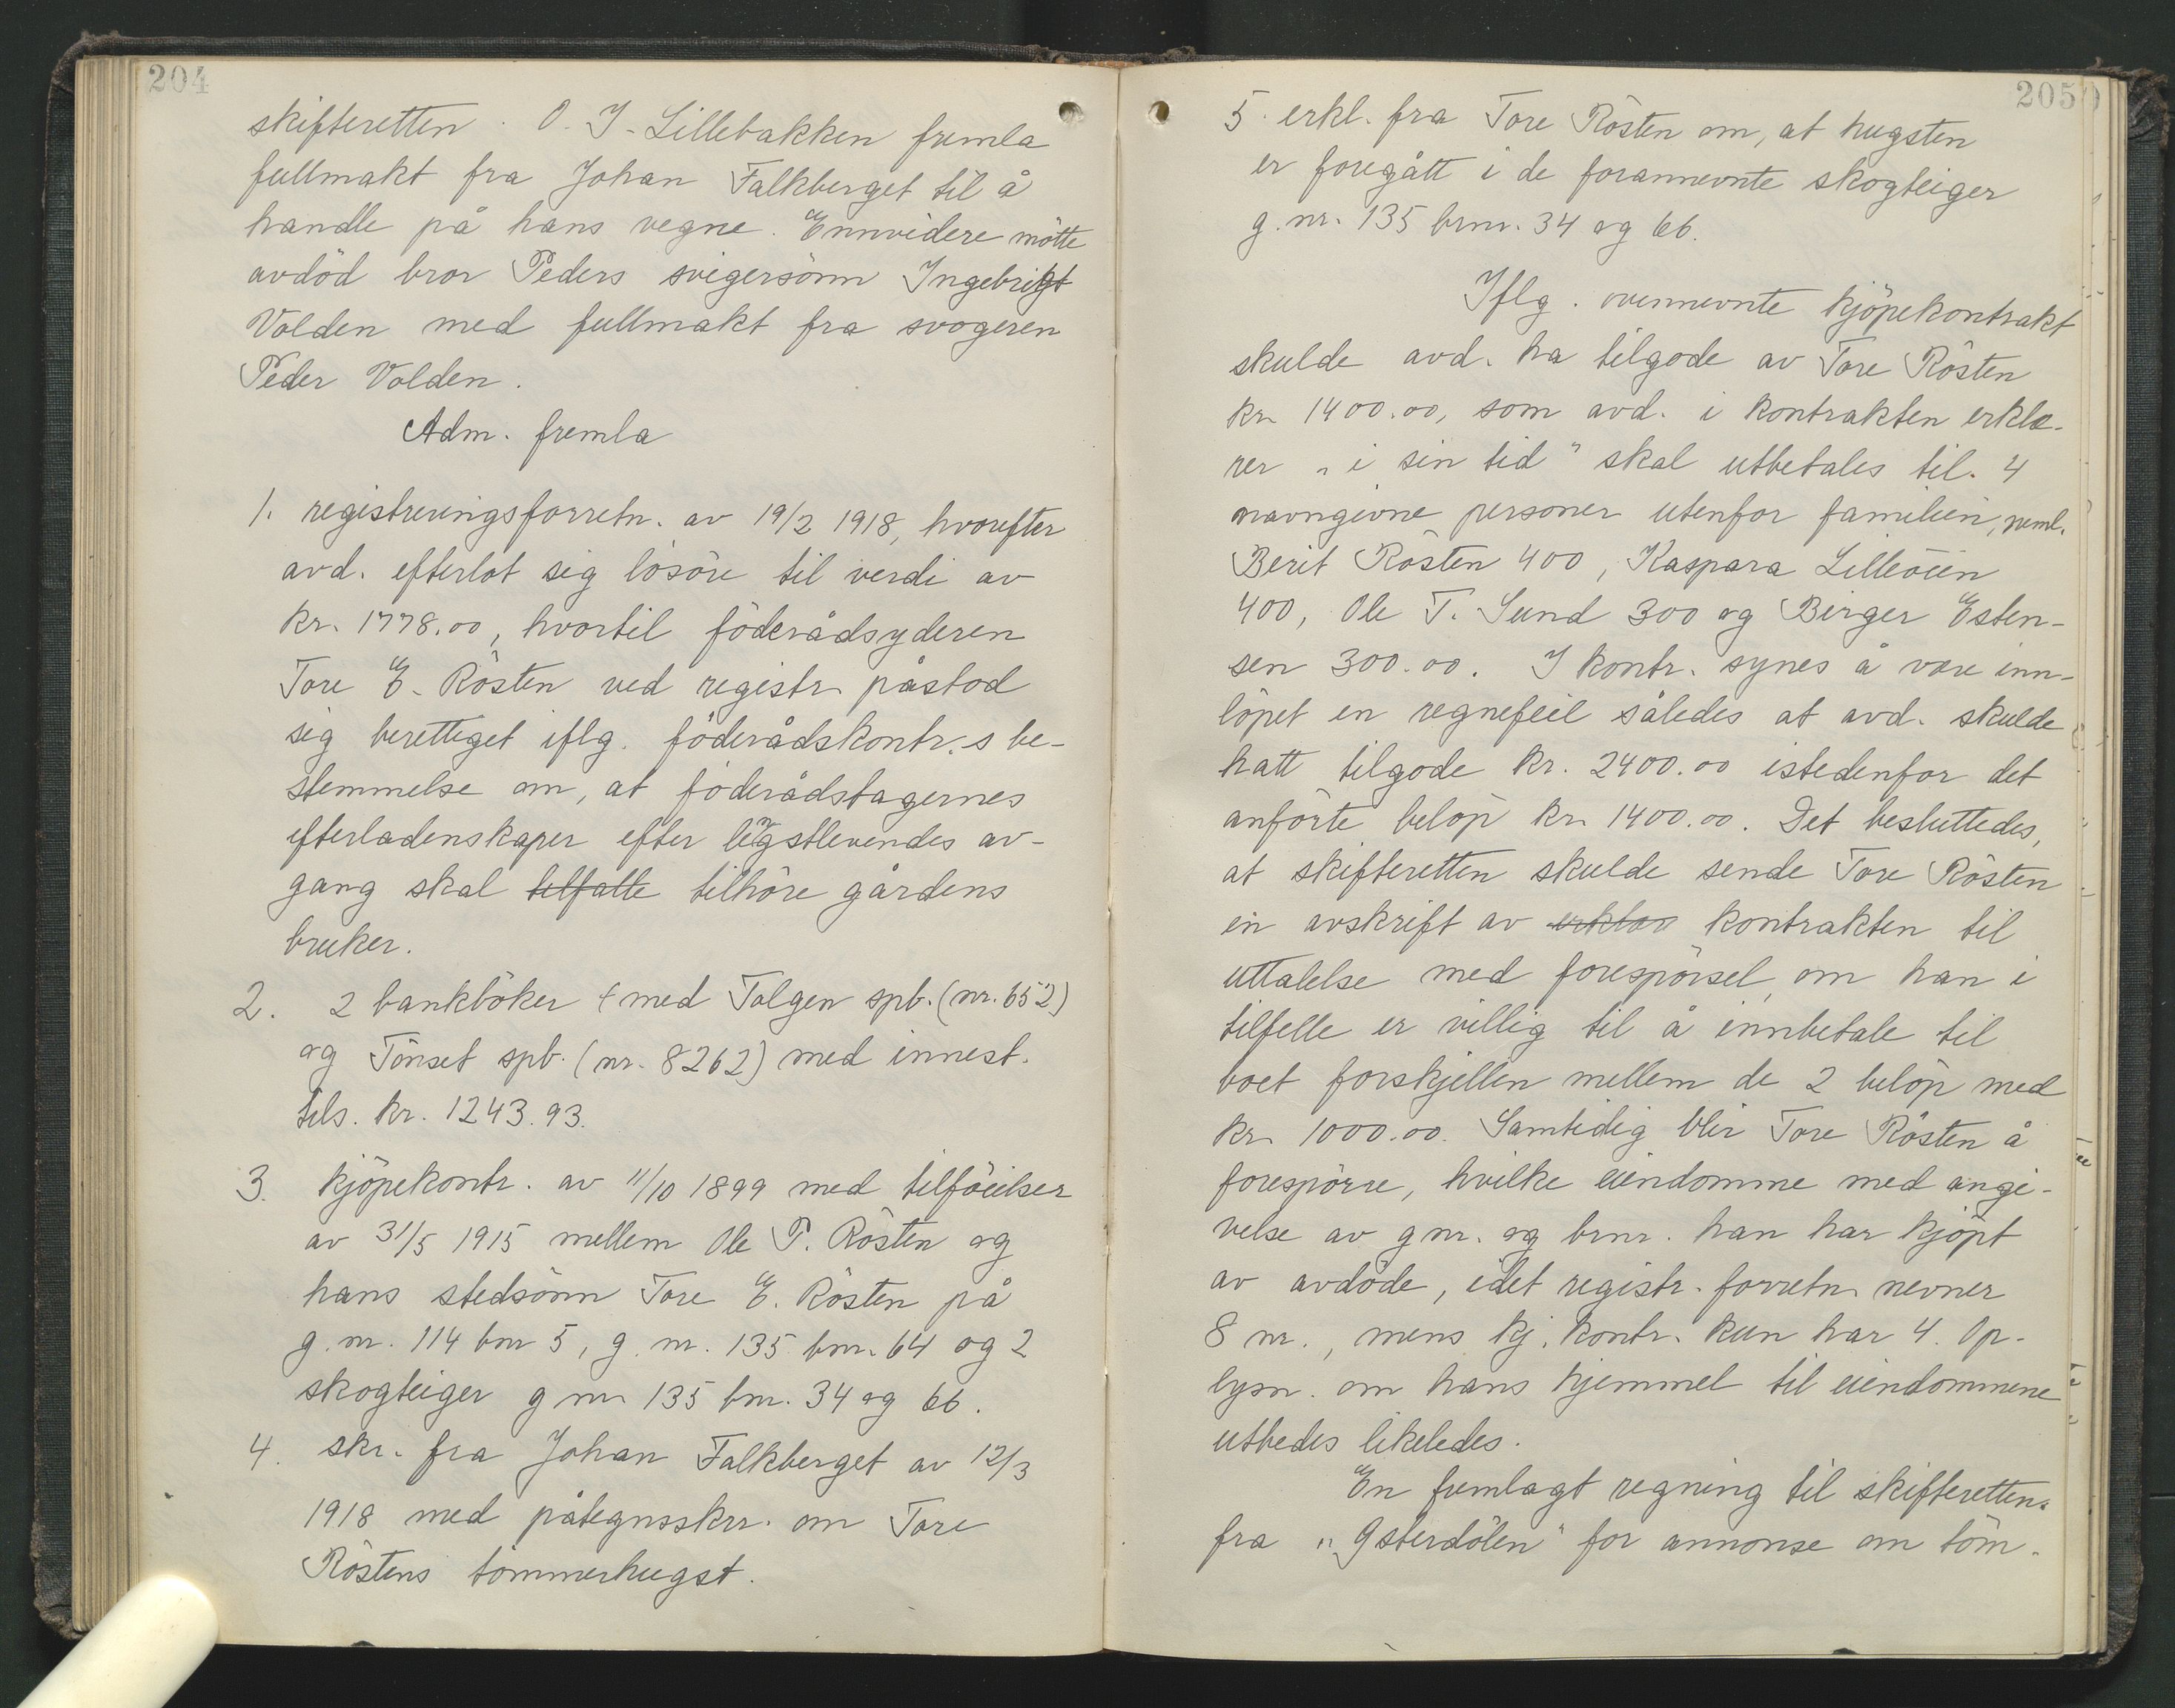 204
skifteretten. O. J. Lillebakken fremla
fullmakt fra Johan Falkberget til å
handle på hans vegne. Ennvidere mötte
avdöd bror Peders svigersönn Ingebrigt
Volden med fullmakt fra svogeren
Peder Volden.
Adm. fremla
1. registreringsforretn. av 19/2 1918, hvorefter
avd. efterlot sig lösöre til verdi av
kr. 1778.00, hvortil föderådsyderen
Tore E. Rösten ved registr. påstod
sig berettiget iflg. föderådskontr.s be-
stemmelse om, at föderådstagernes
efterladenskaper efter lengstlevendes av-
gang skal tilfalle tilhöre gårdens
bruker.
2. 2 bankböker med Tolgen spb. (nr. 652)
og Tönset spb. (nr. 8262) med innest.
tils. kr. 1243.93.
3. kjöpekontr. av 11/10 1899 med tilföielser
av 31/5 1915 mellem Ole P. Rösten og
hans stedsönn Tore E. Rösten på
g. nr. 114 bnr 5, g. nr. 135 bnr. 64 og 2
skogteiger g nr 135 bnr. 34 og 66.
4. skr. fra Johan Falkberget av 12/3
1918 med påtegnsskrr. om Tore
Röstens tömmerhugst.
205
5. erkl. fra Tore Rösten om, at hugsten
er foregått i de forannevnte skogteiger
g. nr. 135 brnr. 34 og 66.
Iflg. ovennevnte kjöpekontrakt
skulde avd. ha tilgode av Tore Rösten
kr 1400.00, som avd. i kontrakten erklæ-
rer „i sin tid" skal utbetales til. 4
navngivne personer utenfor familien, neml.
Berit Rösten 400, Kaspara Lilleöien
400, Ole T. Sund 300 og Birger Esten-
sen 300.00. I kontr. synes å være inn-
löpet en regnefeil således at avd. skulde
hatt tilgode kr. 2400.00 istedenfor det
anförte belöp kr 1400.00. Det besluttedes,
at skifteretten skulde sende Tore Rösten
en avskrift av erklær kontrakten til
uttalelse med forespörsel, om han i
tilfelle er villig til å innbetale til
boet forskjellen mellem de 2 belöp med
kr 1000.00. Samtidig blir Tore Rösten å
forespörre, hvilke eiendomme med angi-
velse av gnr. og brnr. han har kjöpt
av avdöde, idet registr. forretn. nevner
8 nr., mens kj. kontr. kun har 4. Op-
lysn. om hans hjemmel til eiendommene
utbedes likeledes.
En fremlagt regning til skifteretten
fra „Østerdölen" for annonse om töm-